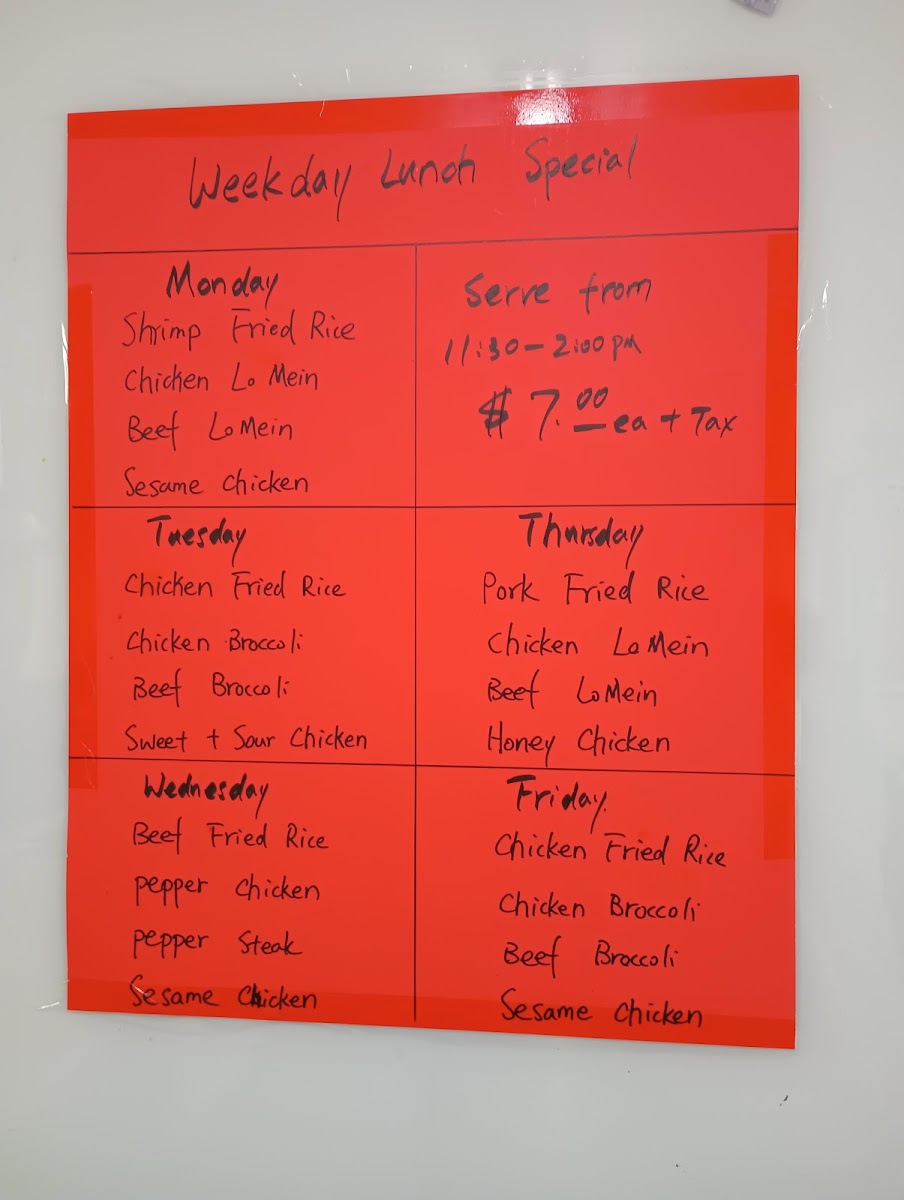 Weekday Lunch Special
Monday
Shrimp Fried Rice
Chicken Lo Mein
Beef Lo Mein
Sesame Chicken
Serve from
11:30-2:00 PM
$7.00 ea + Tax
Tuesday
Chicken Fried Rice
Chicken Broccoli
Beef Broccoli
Sweet + Sour Chicken
Thursday
Pork Fried Rice
Chicken Lo Mein
Beef Lo Mein
Honey Chicken
Wednesday
Beef Fried Rice
Pepper Chicken
Pepper Steak
Sesame Chicken
Friday
Chicken Fried Rice
Chicken Broccoli
Beef Broccoli
Sesame Chicken